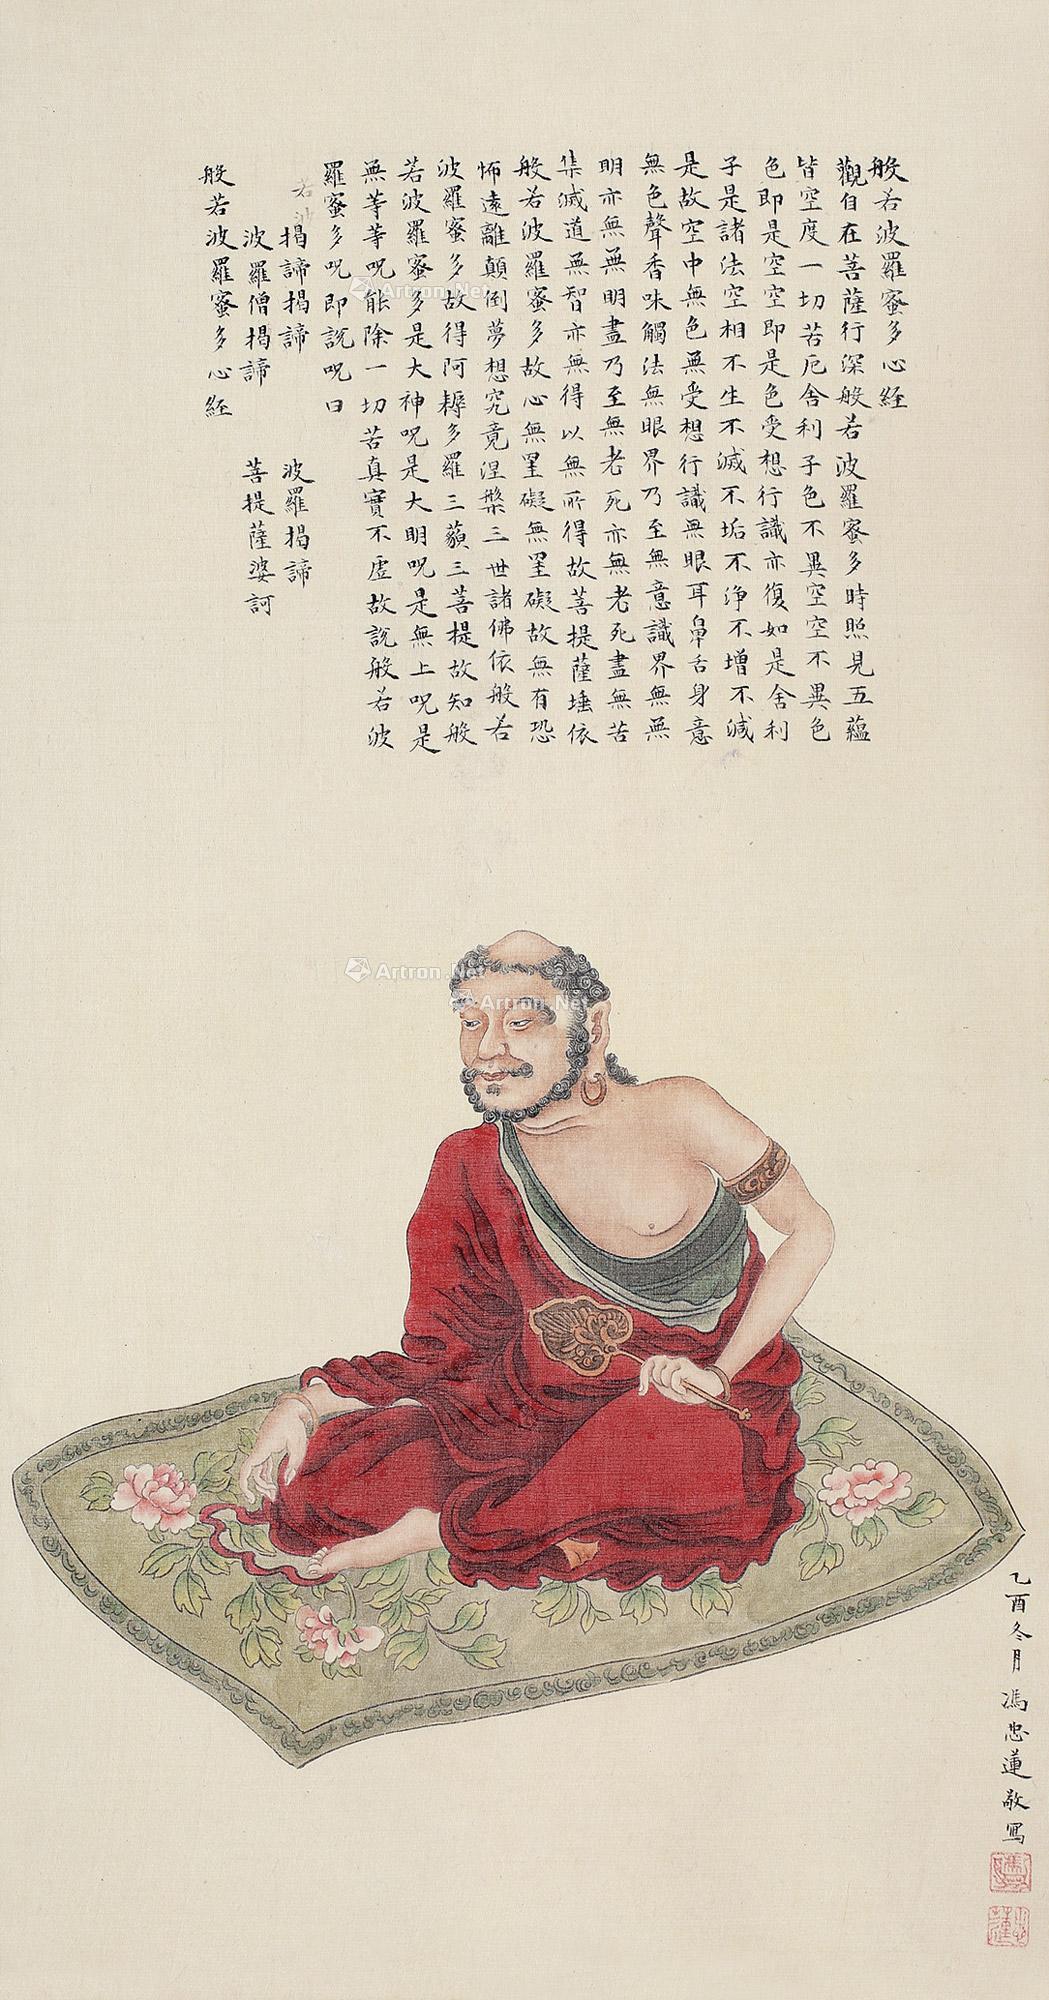 般若波羅蜜多心経
觀自在菩薩行深般若波羅蜜多時照見五蘊
皆空度一切苦厄舍利子色不異空空不異色
色即是空空即是色受想行識亦復如是舍利
子是諸法空相不生不滅不垢不淨不增不減
是故空中無色無受想行識無眼耳鼻舌身意
無色聲香味觸法無眼界乃至無意識界無無
明亦無無明盡乃至無老死亦無老死盡無苦
集滅道無智亦無得以無所得故菩提薩埵依
般若波羅蜜多故心無罣礙無罣礙故無有恐
怖遠離顛倒夢想究竟涅槃三世諸佛依般若
波羅蜜多故得阿耨多羅三藐三菩提故知般
若波羅蜜多是大神呪是大明呪是無上呪是
無等等呪能除一切苦真實不虛故說般若波
羅蜜多呪即說呪曰
若波
揭諦揭諦 波羅揭諦
波羅僧揭諦 菩提薩婆訶
般若波羅蜜多心経
乙酉冬月馮忠蓮敬寫
Artron.Net
Artron.Net
Artron.Net